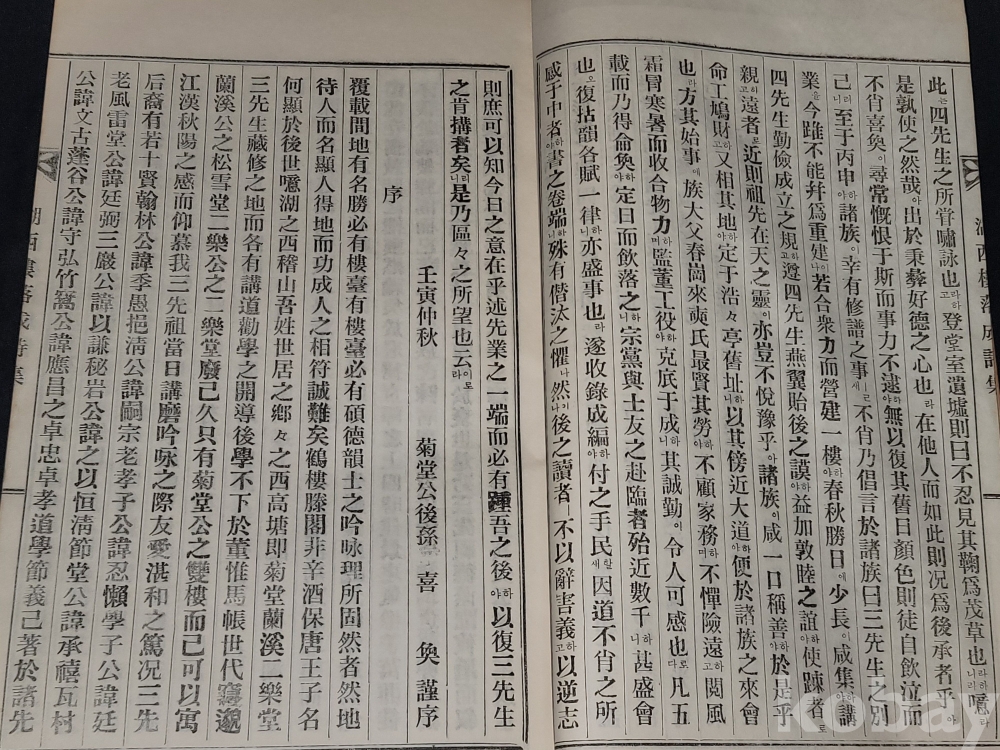 此四先生之所嘗嘯詠也라登堂室遺墟則曰不忍見其鞠爲茂草也라噫라
是孰使之然哉아出於秉彛好德之心也라在他人而如此則况爲後承者乎아
不肖喜奐이尋常慨恨于斯而事力不逮하야無以復其舊日顔色則徒自飮泣而
己러니至于丙申하야諸族이幸有修譜之事할새不肖乃倡言於諸族曰三先生之別
業을今雖不能幷爲重建이나若合衆力而營建一樓하야春秋勝日에少長이咸集하야講
四先生勤儉成立之規하고遵四先生燕翼貽後之謨하야益加敦睦之誼하야使踈者로
親하고遠者로近則祖先在天之靈이亦豈不悅豫乎아諸族이咸一口稱善하야於是乎
命工鳩財하고又相其地하야定于浩々亭舊址하니以其傍近大道하야便於諸族之來會
也라方其始事에族大父春崗來奭氏最賢其勞하야不顧家務하며不憚險遠하고閱風
霜冒寒暑而收合物力하며監董工役하야克底于成하니其誠勤이令人可感也로다凡五
載而乃得侖奐하야定日而飮落之하니宗黨與士友之赴臨者殆近數千이니甚盛會
也오復拈韻各賦一律하니亦盛事也라遂收錄成編하야付之手民할새因道不肖之所
感于中者하야書之卷端하니殊有僭汰之懼나然이나後之讀者不以辭害義하고以逆志
則庶可以知今日之意在乎述先業之一端而必有踵吾之後하야以復三先生
之肯搆者矣리니是乃區々之所望也云이로라
壬寅仲秋 菊堂公後孫 喜 奐 謹序
序
覆載間地有名勝必有樓臺有樓臺必有碩德韻士之吟咏理所固然者然地
待人而名顯人得地而功成人之相符誠難矣鶴樓滕閣非辛酒保唐王子名
何顯於後世噫湖之西稽山吾姓世居之鄕々之西高塘即菊堂蘭溪二樂堂
三先生藏修之地而各有講道勸學之開導後學不下於董惟馬帳世代寫邈
蘭溪公之松雪堂二樂公之二樂堂廢己久只有菊堂公之雙樓而己可以寓
江漢秋陽之感而仰慕我三先祖當日講磨吟咏之際友愛湛和之篤况三先
后裔有若十賢翰林公諱季愚挹淸公諱嗣宗老孝子公諱忍懶學子公諱廷
老風雷堂公諱廷弼三嚴公諱以謙秘岩公諱之以恒淸節堂公諱承禧瓦村
公諱文古蓬谷公諱守弘竹窩公諱應昌之卓忠卓孝道學節義己著於諸先